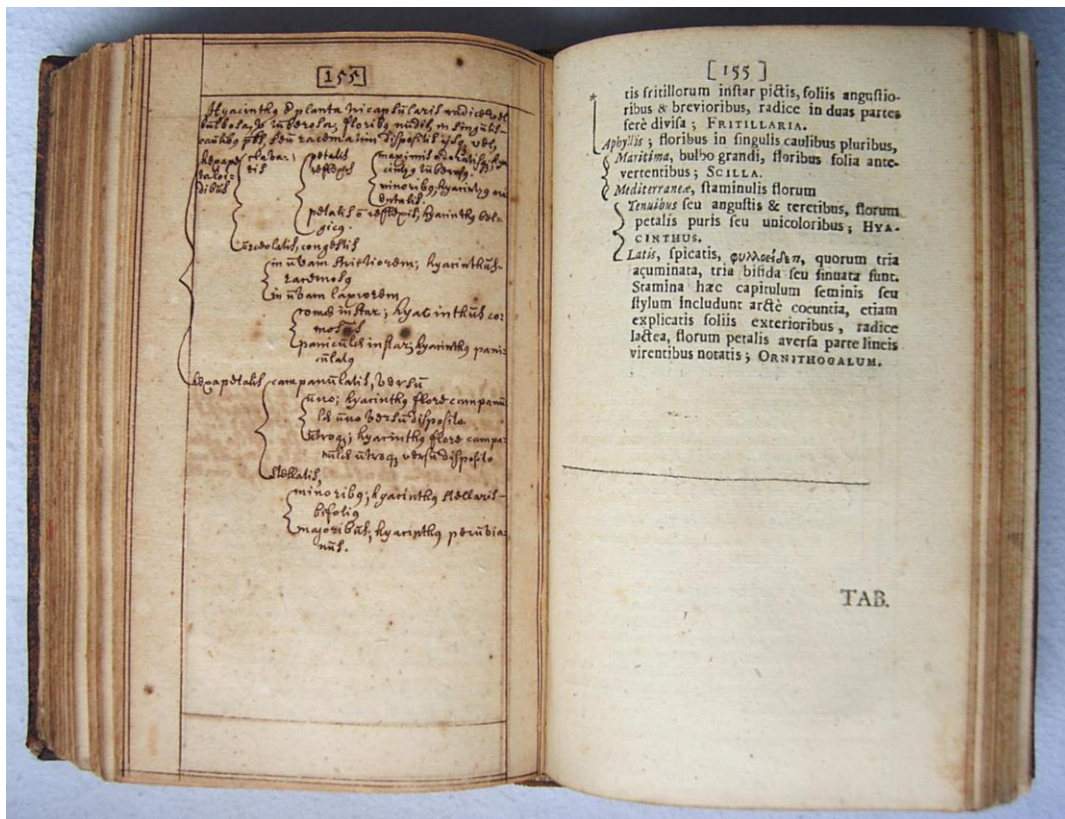 [155]
Hyacinthꝰ ē planta tricapsūlaris radice vel
būlbosa, vel tūberosa; floribꝰ nūdis in singūlis
caūlibꝰ plūs, seu racematim dispositis ijsqꝫ vel,
hexape
taloi-
dibūs
clavar:
tis
petalis
reflexis
maximis odoratis; hya
cinthꝰ tūberosꝰ
minoribꝰ; hyacinthꝰ ori
entalis.
petalis ō reflexis; hyacinthꝰ bel
gicꝰ.
ūrceolatis, congestis
in ūvam strictiorem; hyacinthūs
racemosꝰ
in ūvam laxiorem
comæ instar; hyacinthūs co-
mosūs
panicūlæ instar; hyacinthꝰ pani-
cūlatꝰ
hexapetalis campanūlatis, versū
ūno; hyacinthꝰ flore campanū
læ ūno versū disposito
ūtroqꝫ; hyacinthꝰ flore campa-
nūlæ ūtroqꝫ versū disposito
stellatis,
minoribꝰ; hyacinthꝰ stellaris
bifoliꝰ
majoribūs; hyacinthꝰ perūvia:
nūs.
[155]
tis fritillorum inſtar pictis, foliis anguſtio-
ribus & brevioribus, radice in duas partes
ferè diviſa; FRITILLARIA.
Aphyllis; floribus in ſingulis caulibus pluribus,
Maritima, bulbo grandi, floribus folia ante-
vertentibus; SCILLA.
Mediterraneæ, ſtaminulis florum
Tenuibus ſeu anguſtis & teretibus, florum
petalis puris ſeu unicoloribus; HYA-
CINTHUS.
Latis, ſpicatis, φυλλοείδεσι, quorum tria
acuminata, tria bifida ſeu ſinuata ſunt.
Stamina hæc capitulum ſeminis ſeu
ſtylum includunt arctè coeuntia, etiam
explicatis foliis exterioribus, radice
lactea, florum petalis averſa parte lineis
virentibus notatis; ORNITHOGALUM.
TAB.